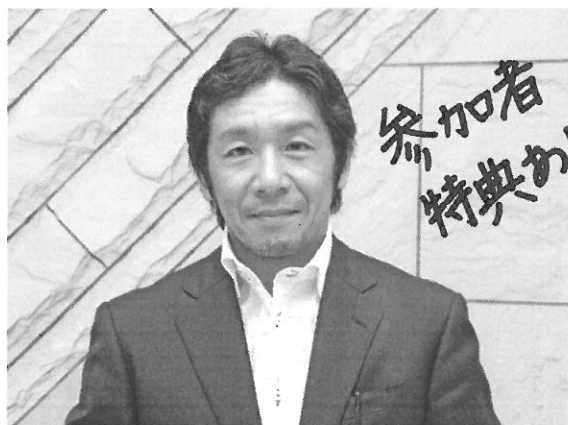 参加者
特典あ